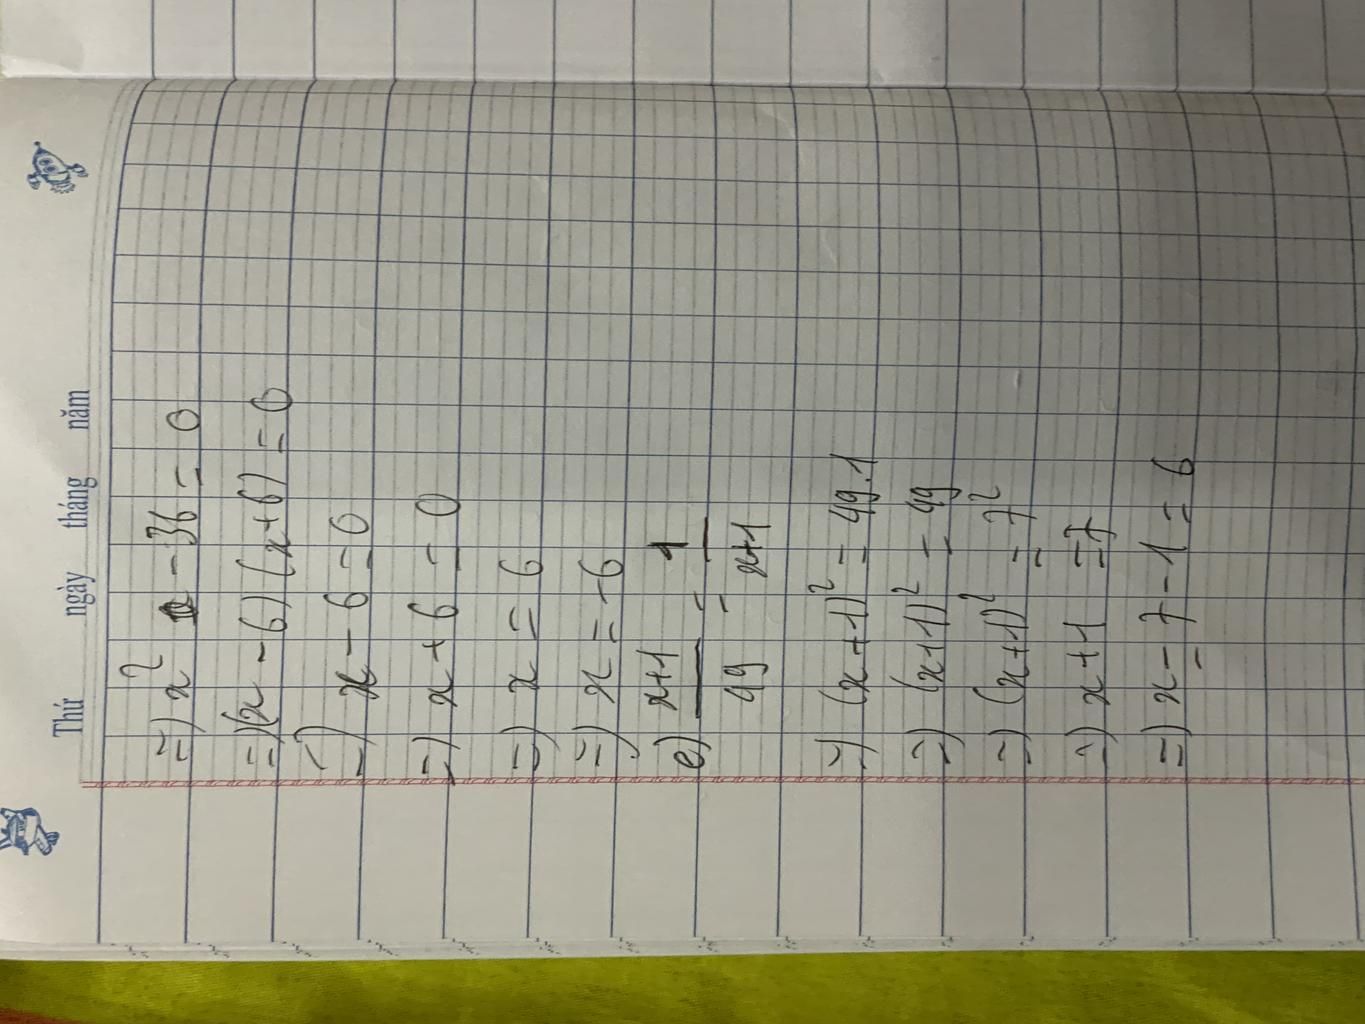 Thứ ngày tháng năm
=) x² - 36 = 0
=) (x - 6) (x + 6) = 0
=) x - 6 = 0
=) x + 6 = 0
=) x = 6
=) x = -6
e) x+1/49 = 1/x+1
=) (x+1)² = 49.1
=) (x+1)² = 49
=) (x+1)² = 7²
=) x+1 = 7
=) x = 7 - 1 = 6